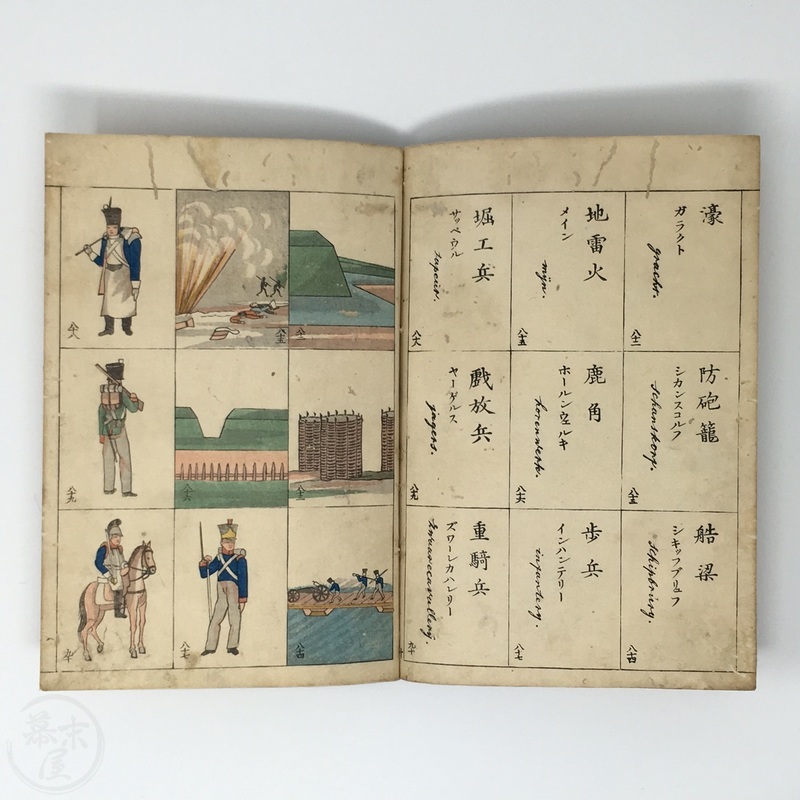 濠
ガラクト
gracht.
八十二
防砲籠
シカンスコルフ
schanskorf.
八十三
舩梁
シキップブリュフ
schipbrug.
八十四
地雷火
メイン
mijn.
八十五
鹿角
ホールンウェルキ
horenwerk.
八十六
歩兵
インハンテリー
infantery.
八十七
堀工兵
サッペウル
sapeur.
八十八
戯放兵
ヤーゲルス
jagers.
八十九
重騎兵
ズワーレカハレリー
zwaarecavallery.
九十
八十二
八十三
八十四
八十五
八十六
八十七
八十八
八十九
九十
幕末屋